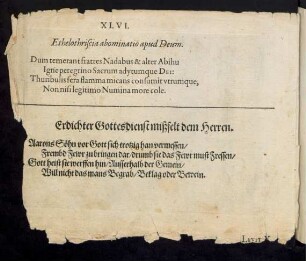 XLVI.
Ethelothriscia abominatio apud Deum.
Dum temerant fratres Nadabus & alter Abihu
Igne peregrino Sacrum adytumque DEI:
Thuribulis fera flamma micans consumit vtrumque,
Non nisi legitimo Numina more cole.
Erdichter Gottesdienst mißfelt dem Herren.
Aarons Söhn vor Gott sich trotzig han vermessen/
Frembd Fewr zu bringen dar/drumb sie das Fewr must Fressen/
Gott heist sie werffen hin/Ausserhalb der Gemein/
Will nicht das mans Begrab/Beklag oder Bewein.
LEVIT. X.